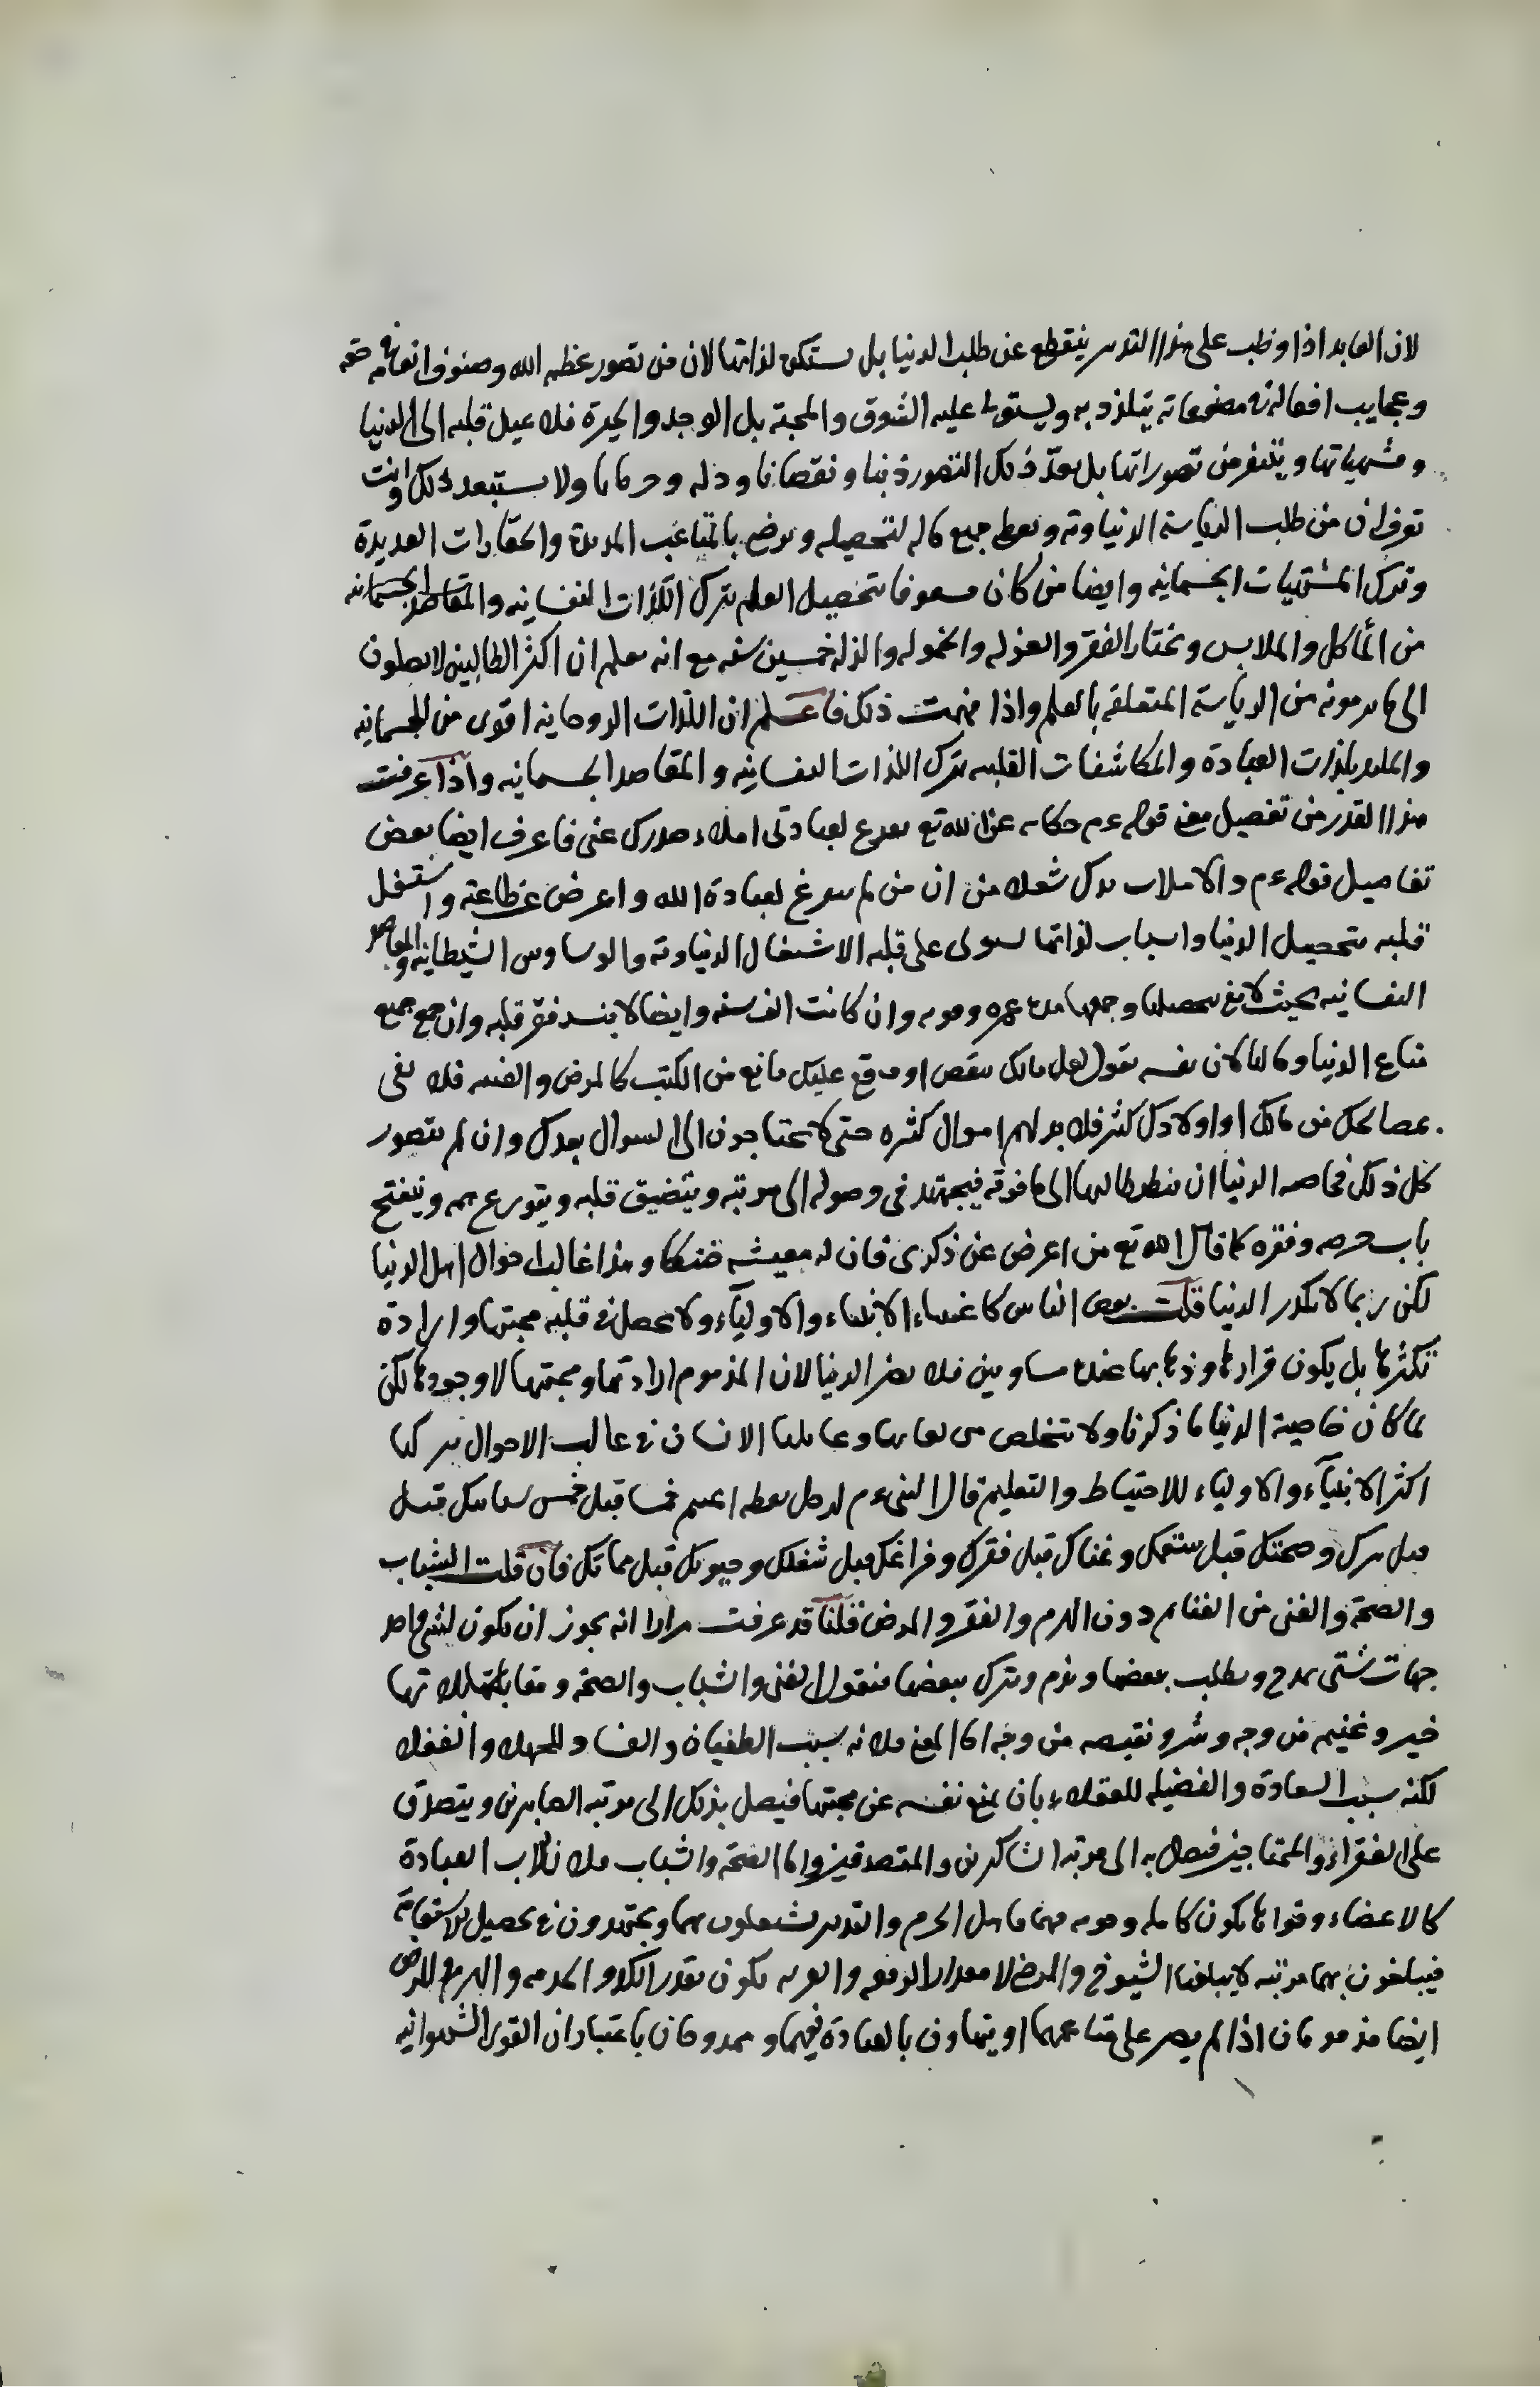 لان العابد اذا وظب على هذا التدبير ينقطع عن طلب الدنيا بل يستنكف لذاتها لان من تصور عظمة الله وصنوف انعامه في حقه
وعجايب افعاله في مصنوعاته يتلذذ به ويستولى عليه الشوق والمحبة بل الوجد والحيرة فلا يميل قلبه الى الدنيا
ومشهياتها ويتنفر من تصوراتها بل يعد ذلك التصور ذنبا ونقصانا وذلة وحرمانا ولا يستبعد ذلك وانت
تعرف ان من طلب الرياسة الدنياوية ويعطى جميع ماله لتحصيله ويرضى بالمتاعب المديدة والحقارات العديدة
وترك المشتهيات الجسمانية وايضا من كان مشعوفا بتحصيل العلم بترك اللذات النفسانية والمقاصد الجسمانية
من المأكل والملابس ويختار الفقر والعزلة والخمولة والذلة خمسين سنة مع انه يعلم ان اكثر الطالبين لا يصلون
الى ما يرمونه من الرياسة المتعلقة بالعلم واذا فهمت ذلك فاعلم ان اللذات الروحانية اقوى من الجسمانية
والملتذ بلذات العبادة والمكاشفات القلبية بترك اللذات النفسانية والمقاصد الجسمانية واذا عرفت
هذا القدر من تفصيل معنى قوله عم حكاية عن الله تع تفرغ لعبادتى املاء صدرك غنى فاعرف ايضا بعض
تفاصيل قوله عم والا ملأت يدك شغلا من ان من لم يتفرغ لعبادة الله واعرض عن طاعته واشتغل
قلبه بتحصيل الدنيا واسباب لذاتها يستولى على قلبه الاشتغال الدنياوية والوساوس الشيطانية والمقاصد
النفسانية بحيث لا يفى بتحصيلها وجمعها مدة عمره وقوته وان كانت الف سنة وايضا لا ينسد فقر قلبه وان جمع جميع
متاع الدنيا ومالها لان نفسه تقول لعل مالك ينقص او يقع عليك مانع من الكسب كالمرض والفتنة فلا يفى
بمصالحك من مالك او اولادك كثير فلا بد لهم اموال كثيرة حتى لا يحتاجون الى السؤال بعدك وان لم يتصور
كل ذلك فخاصة الدنيا ان ينظر طالبها الى ما فوقه فيجتهد في وصوله الى مرتبته ويتضيق قلبه ويتوزع همه وينفتح
باب حرصه وفقره كما قال الله تع من اعرض عن ذكرى فان له معيشة ضنكا وهذا غالب احوال اهل الدنيا
لكن ربما لا تكدر الدنيا قلب بعض الناس كاغنياء الانبياء والاولياء ولا يحصل في قلبه محبتها وارادة
تكثرها بل يكون قرارها وذهابها عنده مساويين فلا يضر الدنيا لان المذموم ارادتها ومحبتها لا وجودها لكن
لما كان خاصية الدنيا ما ذكرنا ولا يتخلص من وغايلها الانسان في غالب الاحوال تركها
اكثر الانبياء والاولياء للاحتياط والتعليم قال النبى عم لرجل يعظه اغتنم خمسا قبل خمس شبابك قبل
قبل هرمك وصحتك قبل سقمك وغناك قبل فقرك وفراغك قبل شغلك وحيوتك قبل مماتك فان قلت الشباب
والصحة والغنى من الغنايم دون الهرم والفقر والمرض قلنا قد عرفت مرارا انه يجوز ان يكون لشئ واحد
جهات شتى يمدح ويطلب بعضها ويذم ويترك بعضها فنقول الغنى والشباب والصحة ومقابلتها
خير وغنيمة من وجه وشر ونقيصة من وجه اما الغنى فلانه سبب الطغيان والفساد للجهلاء والغفلاء
لكنه سبب السعادة والفضيلة للعقلاء بان يمنع نفسه عن محبتها فيصل بذلك الى مرتبة الصابرين ويتصدق
على الفقراء والمحتاجين فيصل به الى مرتبة الشاكرين والمتصدقين واما الصحة والشباب فلان آلات العبادة
كالاعضاء وقواها يكون كاملة وقوية فيهما فاهل الحزم والتدبير يشتغلون بهما ويجتهدون في تحصيل الاستقامة
فيبلغون بهما مرتبة لا يبلغها الشيوخ والمرضى لا مقدار الرفعة والعزة يكون بقدر الكد والخدمة والهرم والمرض
ايضا مذمومان اذا لم يصبر على متاعبهما او يتهاون بالعبادة فيهما وممدوحان باعتبار ان القوى الشهوانية